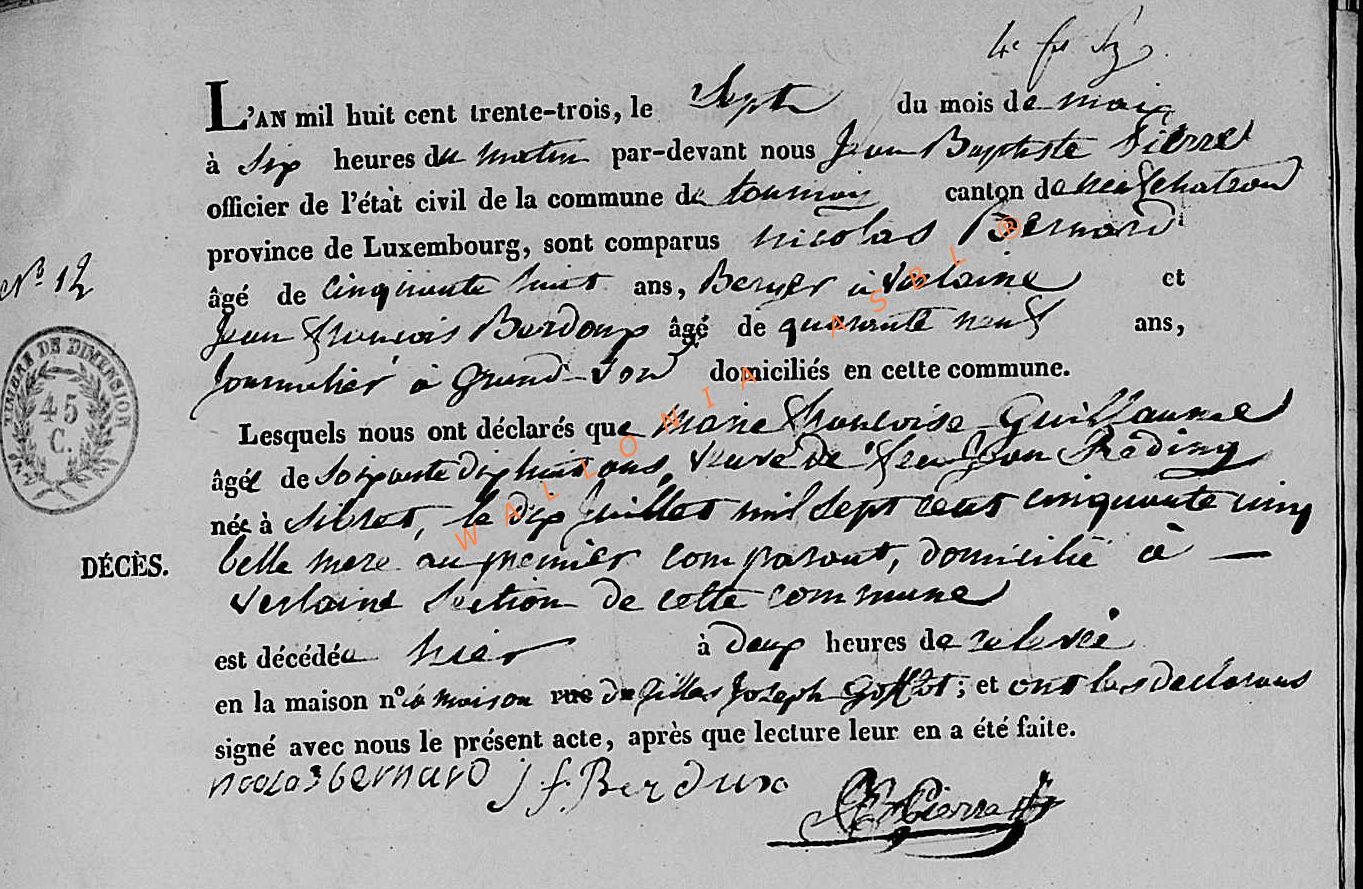 L'AN mil huit cent trente-trois, le Sept du mois de mai
à Six heures du matin par-devant nous Jean Baptiste Pierret
officier de l'état civil de la commune de tournay canton de neufchateau
province de Luxembourg, sont comparus nicolas Bernard
N° 12
âgé de cinquante huit ans, Berger à Verlaine et
Jean françois Burdoux âgé de quarante neuf ans,
Journalier à Grand-Vou domiciliés en cette commune.
TIMBRE DE DIMENSION
45
C.
Lesquels nous ont déclarés que Marie françoise Guillaume
âgée de Soixante dix huit ans, veuve de feu Jean Reding
née à Sibret, le dix juillet mil sept cent cinquante cinq
DÉCÈS.
belle mere au premier comparant, domicilié à —
Verlaine Section de cette commune
est décédée hier à deux heures de relevée
en la maison n° la maison rue de gilles Joseph Goffot ; et ont les declarans
signé avec nous le présent acte, après que lecture leur en a été faite.
nicolas bernard J f. Berdux
Pierret
WALLONIA ASBL ®